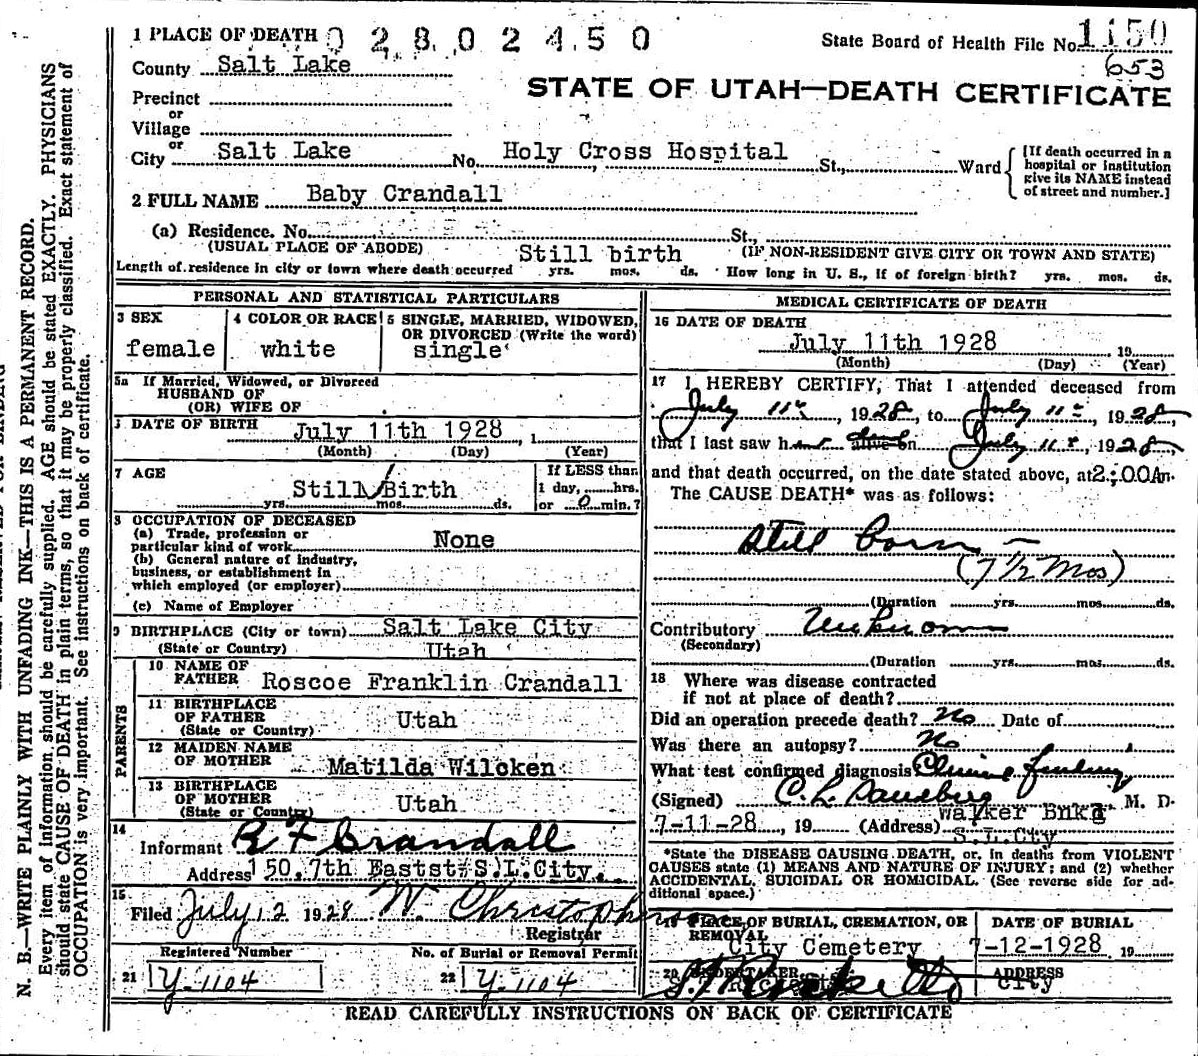 1 PLACE OF DEATH 02802450
State Board of Health File No. 1150
653
County Salt Lake
STATE OF UTAH—DEATH CERTIFICATE
Precinct
or
Village
or
City Salt Lake No. Holy Cross Hospital St., Ward
[If death occurred in a hospital or institution give its NAME instead of street and number.]
2 FULL NAME Baby Crandall
(a) Residence. No. St.,
(USUAL PLACE OF ABODE) Still birth (IF NON-RESIDENT GIVE CITY OR TOWN AND STATE)
Length of residence in city or town where death occurred yrs. mos. ds. How long in U. S., if of foreign birth? yrs. mos. ds.
PERSONAL AND STATISTICAL PARTICULARS
3 SEX
female
4 COLOR OR RACE
white
5 SINGLE, MARRIED, WIDOWED, OR DIVORCED (Write the word)
single
5a If Married, Widowed, or Divorced
HUSBAND OF
(OR) WIFE OF
DATE OF BIRTH July 11th 1928, 1
(Month) (Day) (Year)
7 AGE
Still/Birth
yrs. mos. ds.
If LESS than
1 day, hrs.
or 0 min.?
8 OCCUPATION OF DECEASED
(a) Trade, profession or
particular kind of work None
(b) General nature of industry,
business, or establishment in
which employed (or employer)
(c) Name of Employer
9 BIRTHPLACE (City or town) Salt Lake City
(State or Country) Utah
PARENTS
10 NAME OF
FATHER Roscoe Franklin Crandall
11 BIRTHPLACE
OF FATHER Utah
(State or Country)
12 MAIDEN NAME
OF MOTHER Matilda Wilcken
13 BIRTHPLACE
OF MOTHER Utah
(State or Country)
14
Informant R F Crandall
Address 150.7th Eastst S.L.City.
15
Filed July 12 1928 W. Christopherson
Registrar
Registered Number
21 Y-1104
No. of Burial or Removal Permit
22 Y-1104
MEDICAL CERTIFICATE OF DEATH
16 DATE OF DEATH
July 11th 1928 19
(Month) (Day) (Year)
17 I HEREBY CERTIFY, That I attended deceased from
July 11th, 1928, to July 11th, 1928,
that I last saw her alive on July 11th, 1928,
and that death occurred, on the date stated above, at 2:00 Am.
The CAUSE DEATH* was as follows:
Still Born —
(7 1/2 Mos)
(Duration yrs. mos. ds.
Contributory Unknown
(Secondary)
(Duration yrs. mos. ds.
18 Where was disease contracted
if not at place of death?
Did an operation precede death? No Date of
Was there an autopsy? No
What test confirmed diagnosis
(Signed) C. L. Sandberg M. D.
7-11-28, 19 (Address) Walker Bnkg
S.L.Cty
*State the DISEASE CAUSING DEATH, or, in deaths from VIOLENT
CAUSES state (1) MEANS AND NATURE OF INJURY; and (2) whether
ACCIDENTAL, SUICIDAL OR HOMICIDAL. (See reverse side for ad-
ditional space.)
19 PLACE OF BURIAL, CREMATION, OR
REMOVAL
City Cemetery
DATE OF BURIAL
7-12-1928 19
20 UNDERTAKER
ADDRESS
City
READ CAREFULLY INSTRUCTIONS ON BACK OF CERTIFICATE
N. B.—WRITE PLAINLY WITH UNFADING INK—THIS IS A PERMANENT RECORD.
Every item of information should be carefully supplied. AGE should be stated EXACTLY. PHYSICIANS
should state CAUSE OF DEATH in plain terms, so that it may be properly classified. Exact statement of
OCCUPATION is very important. See instructions on back of certificate.